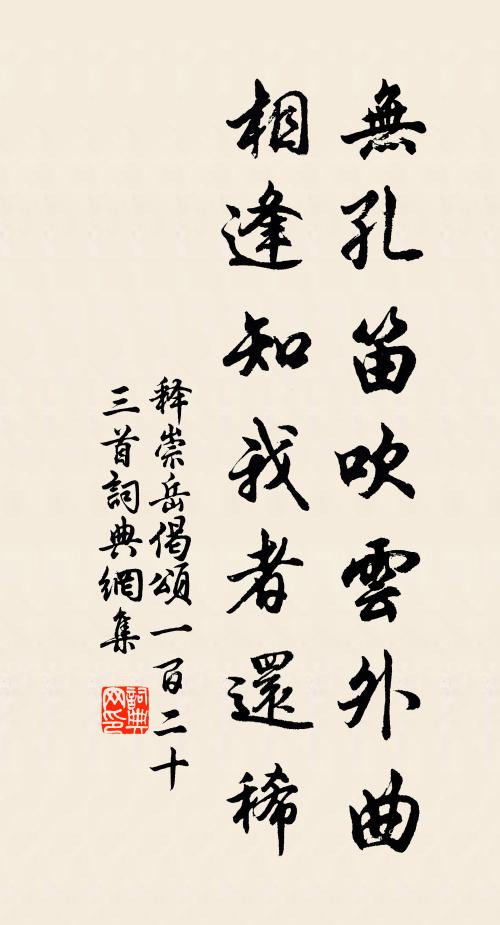 無孔笛吹雲外曲
相逢知我者還稀
释崇岳偈頌一百二十
三首詞典網集
詞典
网印